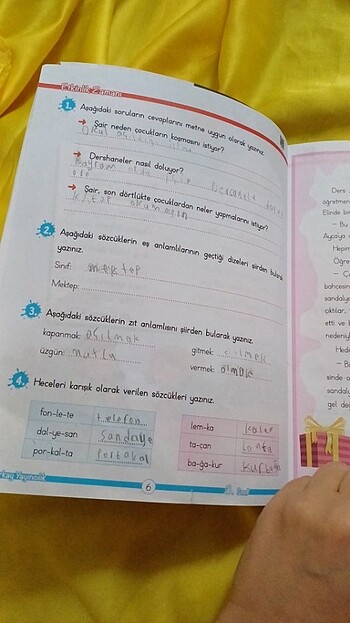 Etkinlik Zamanı
1. Aşağıdaki soruların cevaplarını metne uygun olarak yazınız.
Şair neden çocukların koşmasını istiyor?
Okul açıldığı
Dershaneler nasıl doluyor?
Bayram
Şair, son dörtlükte çocuklardan neler yapmalarını istiyor?
Kitap
2. Aşağıdaki sözcüklerin eş anlamlılarının geçtiği dizeleri şiirden bularak
yazınız.
Sınıf: mektep
Mektep:
3. Aşağıdaki sözcüklerin zıt anlamlısını şiirden bularak yazınız.
kapanmak: açılmak gitmek:
üzgün: mutlu vermek: almak
4. Heceleri karışık olarak verilen sözcükleri yazınız.
fon-le-te telefon lem-ka kalem
dal-ye-san sandalye ta-çan çanta
por-kal-ta portakal ba-ğa-kur kurbağa
Yayıncılık
6
Ders
öğretmen
Elinde bir
– Bu
Ayça'ya v
Hepim
Öğre
– Ç
bahçesin
sandalye
oktılar.
etti ve b
nedeniyl
Hede
– Ba
sinde o
sandal
gel dec